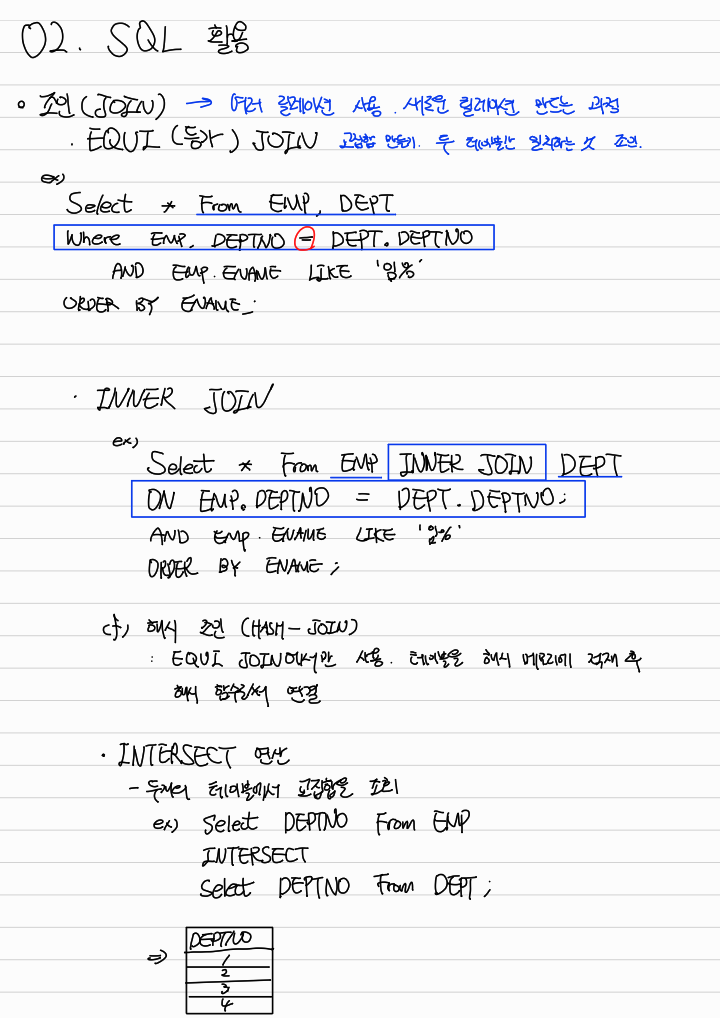 02. SQL 활용
• 조인(JOIN) → 여러 릴레이션 사용. 새로운 릴레이션 만드는 과정
· EQUI (등가) JOIN 교집합 만들기. 두 테이블간 일치하는 것 조인.
ex)
Select * From EMP, DEPT
Where EMP. DEPTNO = DEPT. DEPTNO
AND EMP. ENAME LIKE '임%'
ORDER BY ENAME ;
· INNER JOIN
ex)
Select * From EMP INNER JOIN DEPT
ON EMP. DEPTNO = DEPT. DEPTNO;
AND EMP. ENAME LIKE '임%'
ORDER BY ENAME ;
cf) 해시 조인 (HASH-JOIN)
: EQUI JOIN에서만 사용. 테이블을 해시 메모리에 적재 후
해시 함수로써 연결
· INTERSECT 연산
- 두개의 테이블에서 교집합을 조회
ex) Select DEPTNO From EMP
INTERSECT
Select DEPTNO From DEPT ;
⇒ DEPTNO
1
2
3
4